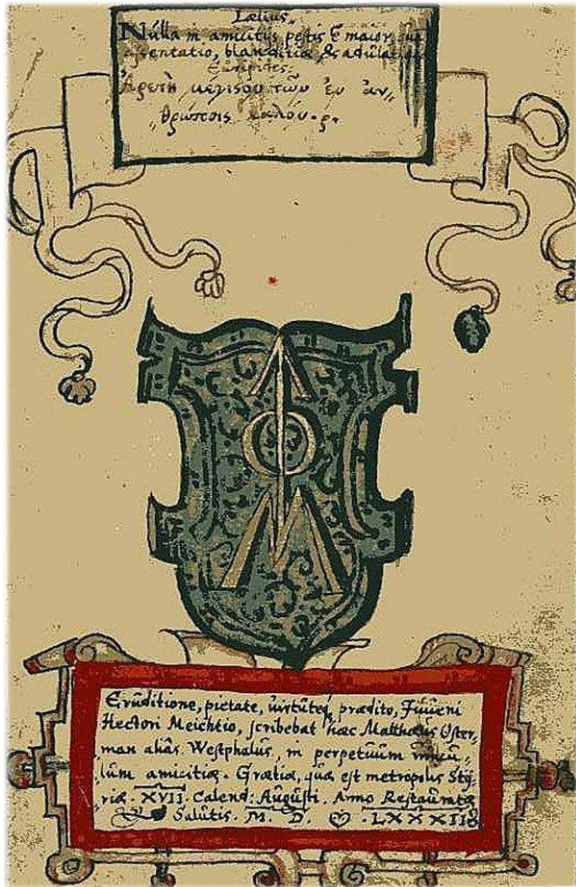 Lælius.
Nulla in amicitiis pestis e maior, quã
assentatio, blanditiæ & adulatio
Euripides.
Ἀρετὴ μεγιςον τῶν ἐν ἀν„
„θρώποις καλόν.
Erŭditione, pietate, virtŭteq; prædito, Jŭveni
Hectori Meichtio, scribebat hæc Matthæŭs Oster„
man aliàs Westphalŭs, in perpetŭŭm vincŭ„
lŭm amicitiæ. Grætiæ, quæ est metropolis Sty„
riæ XVII. Calend: Aŭgŭsti. Anno Restaŭratæ
Salŭtis. M. D. LXXXII